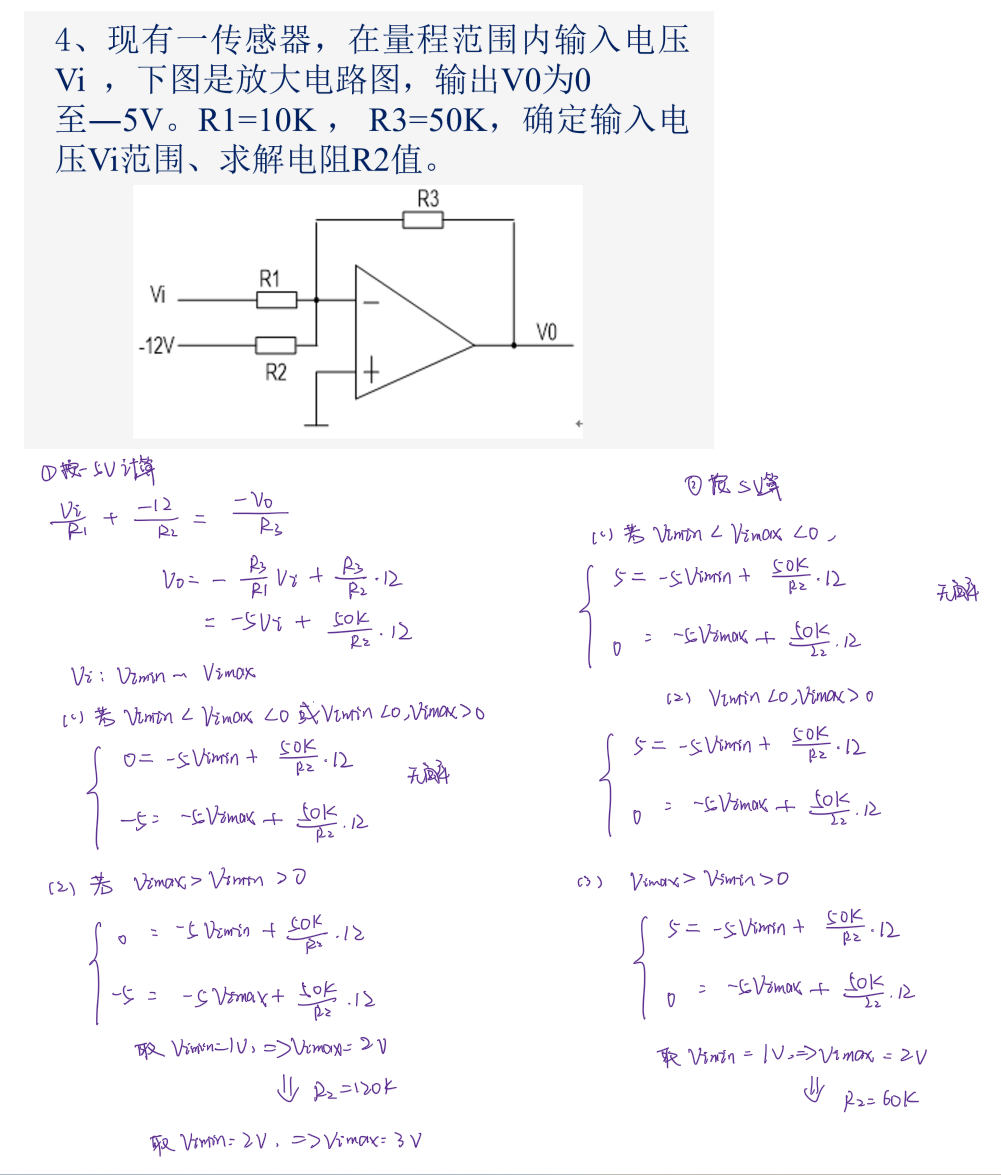 4、现有一传感器，在量程范围内输入电压
Vi ，下图是放大电路图，输出V0为0
至—5V。R1=10K ， R3=50K，确定输入电
压Vi范围、求解电阻R2值。
R3
R1
Vi
−
V0
-12V
R2
+
①按-5V计算
Vi/R1 + -12/R2 = -V0/R3
V0 = - R3/R1 Vi + R3/R2 · 12
= -5Vi + 50K/R2 · 12
Vi : Vimin ~ Vimax
(1) 若 Vimin < Vimax <0 或 Vimin <0, Vimax >0
0 = -5Vimin + 50K/R2 · 12
无解
-5 = -5Vimax + 50K/R2 · 12
(2) 若 Vimax > Vimin >0
0 = -5Vimin + 50K/R2 · 12
-5 = -5Vimax + 50K/R2 · 12
取 Vimin=1V, => Vimax= 2V
⇓ R2=120K
取 Vimin= 2V, => Vimax= 3V
②按5V算
(1) 若 Vimin < Vimax <0,
5 = -5Vimin + 50K/R2 · 12
无解
0 = -5Vimax + 50K/R2 · 12
(2) Vimin <0, Vimax >0
5 = -5Vimin + 50K/R2 · 12
0 = -5Vimax + 50K/R2 · 12
(3) Vimax > Vimin >0
5 = -5Vimin + 50K/R2 · 12
0 = -5Vimax + 50K/R2 · 12
取 Vimin = 1V, => Vimax = 2V
⇓ R2= 60K